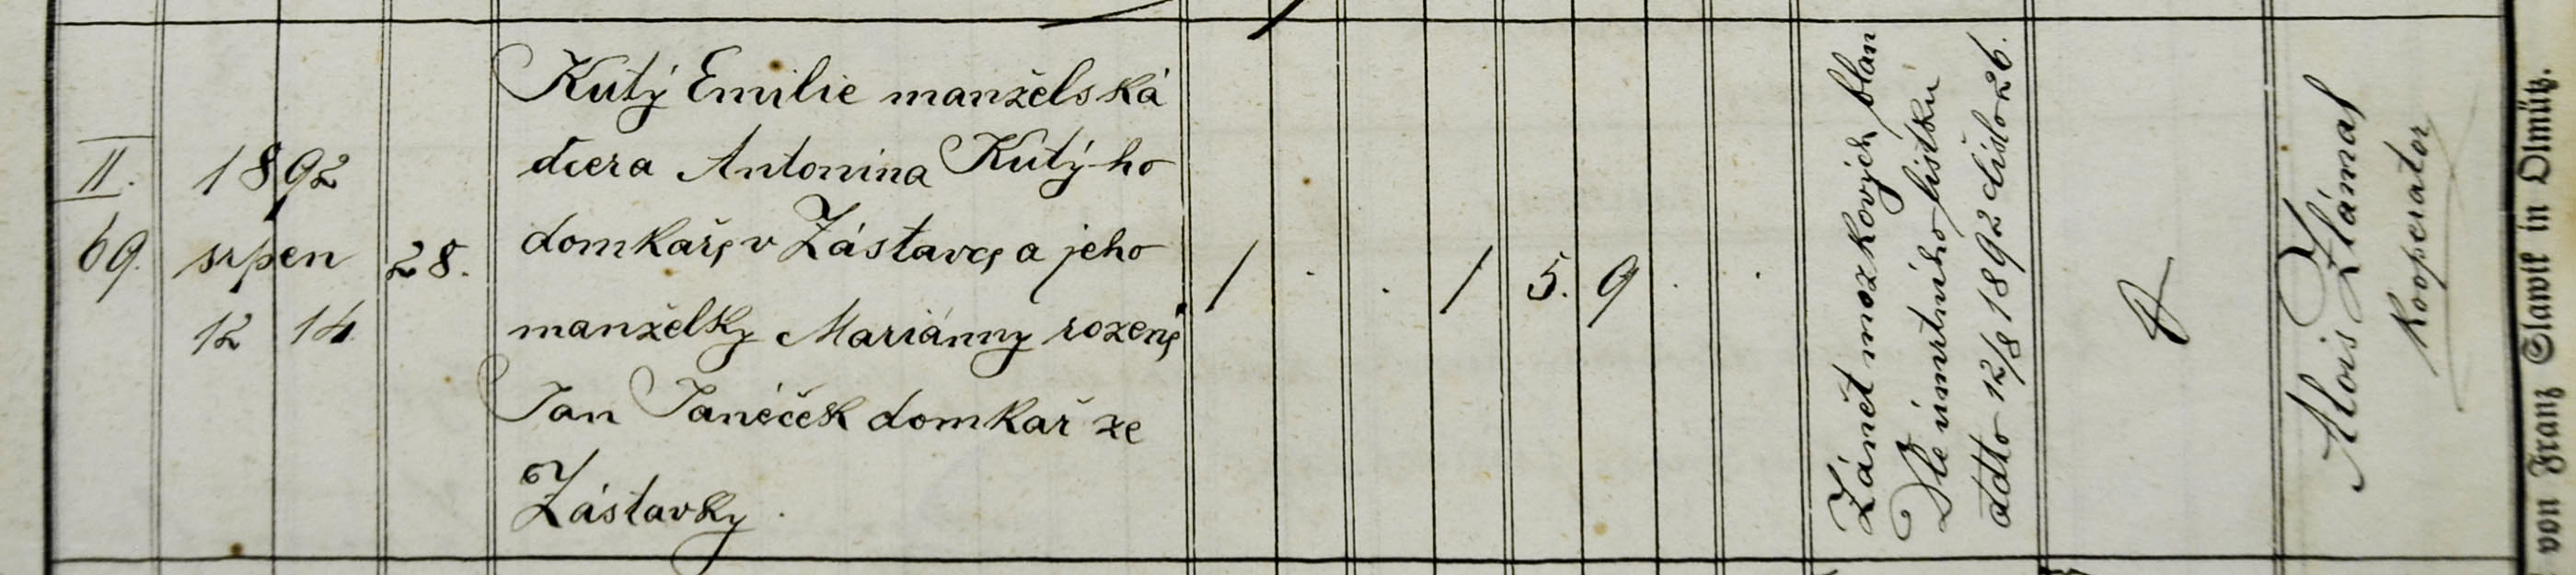 II.
69.
1892
srpen
12 14
28.
Kutý Emilie manželská
dcera Antonina Kutýho
domkaře v Zástavce a jeho
manželky Marianny rozené
Jan Janéček domkař ze
Zástavky.
1 . . 1 5. 9 . .
Zánět mozkových blan
Dle úmrtního lístku
ddto 12/8 1892 číslo 26.
Alois Zlámal
Kooperator
von Franz Slawik in Olmütz.